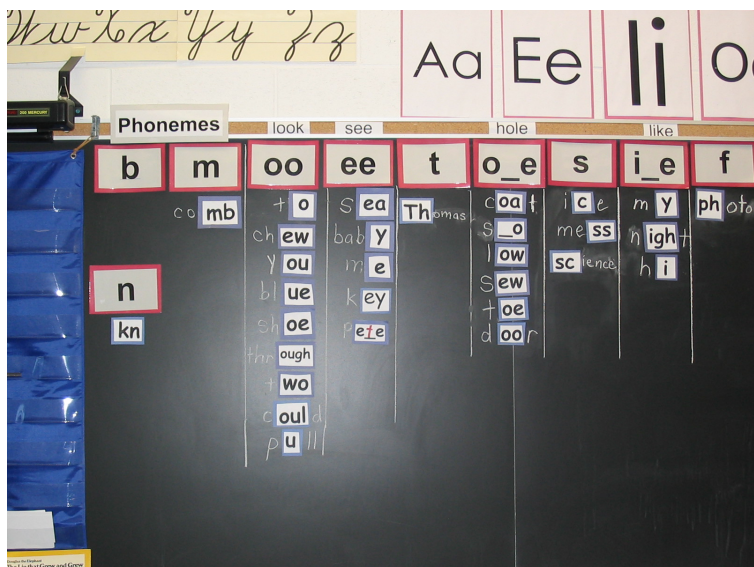 Ww Xx Yy Zz
Aa Ee Ii
Phonemes
look see hole like
b m oo ee t o_e s i_e f
comb
to
chew
you
blue
shoe
through
two
could
pull
sea
baby
me
key
Pete
Thomas
coat
s_o
low
sew
toe
door
ice
mess
science
my
night
hi
photo
n
kn
300 MERCURY